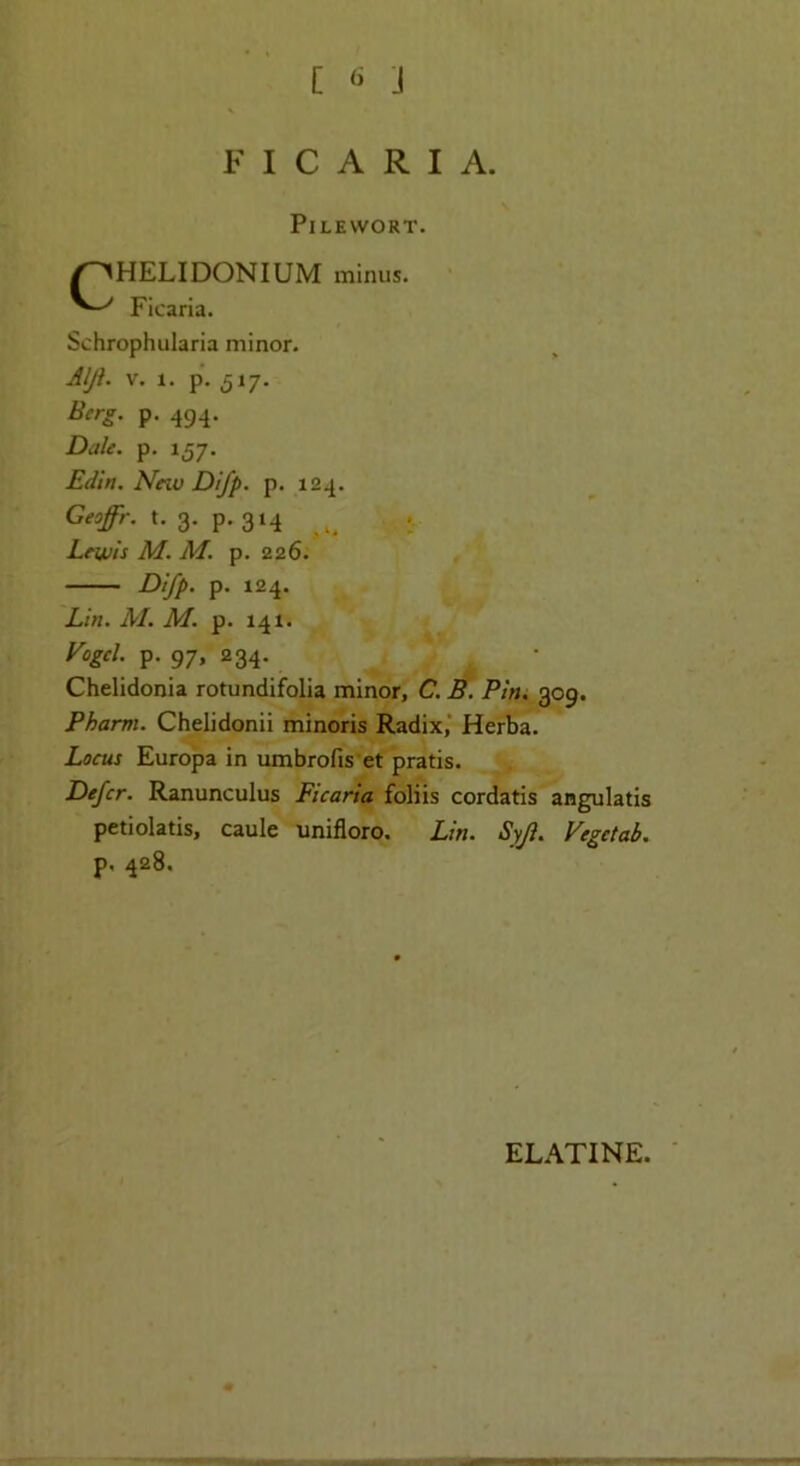 [ 6 ]
FICARIA.
PILEWORT.
CHELIDONIUM minus.
Ficaria.
Schrophularia minor.
Alſt. v. 1. p. 517.
Berg. p. 494.
Dale. p. 157.
Edin. New Diſp. p. 124.
Geoffr. t. 3. p. 314
Lewis M. M. p. 226.
—— Diſp. p. 124.
Lin. M. M. p. 141.
Vogel. p. 97, 234.
Chelidonia rotundifolia minor, C. B. Pin. 309.
Pharm. Chelidonii minoris Radix, Herba.
Locus Europa in umbroſis et pratis.
Deſcr. Ranunculus Ficaria foliis cordatis angulatis
petiolatis, caule unifloro. Lin. Syſt. Vegetab.
p. 428.
ELATINE.